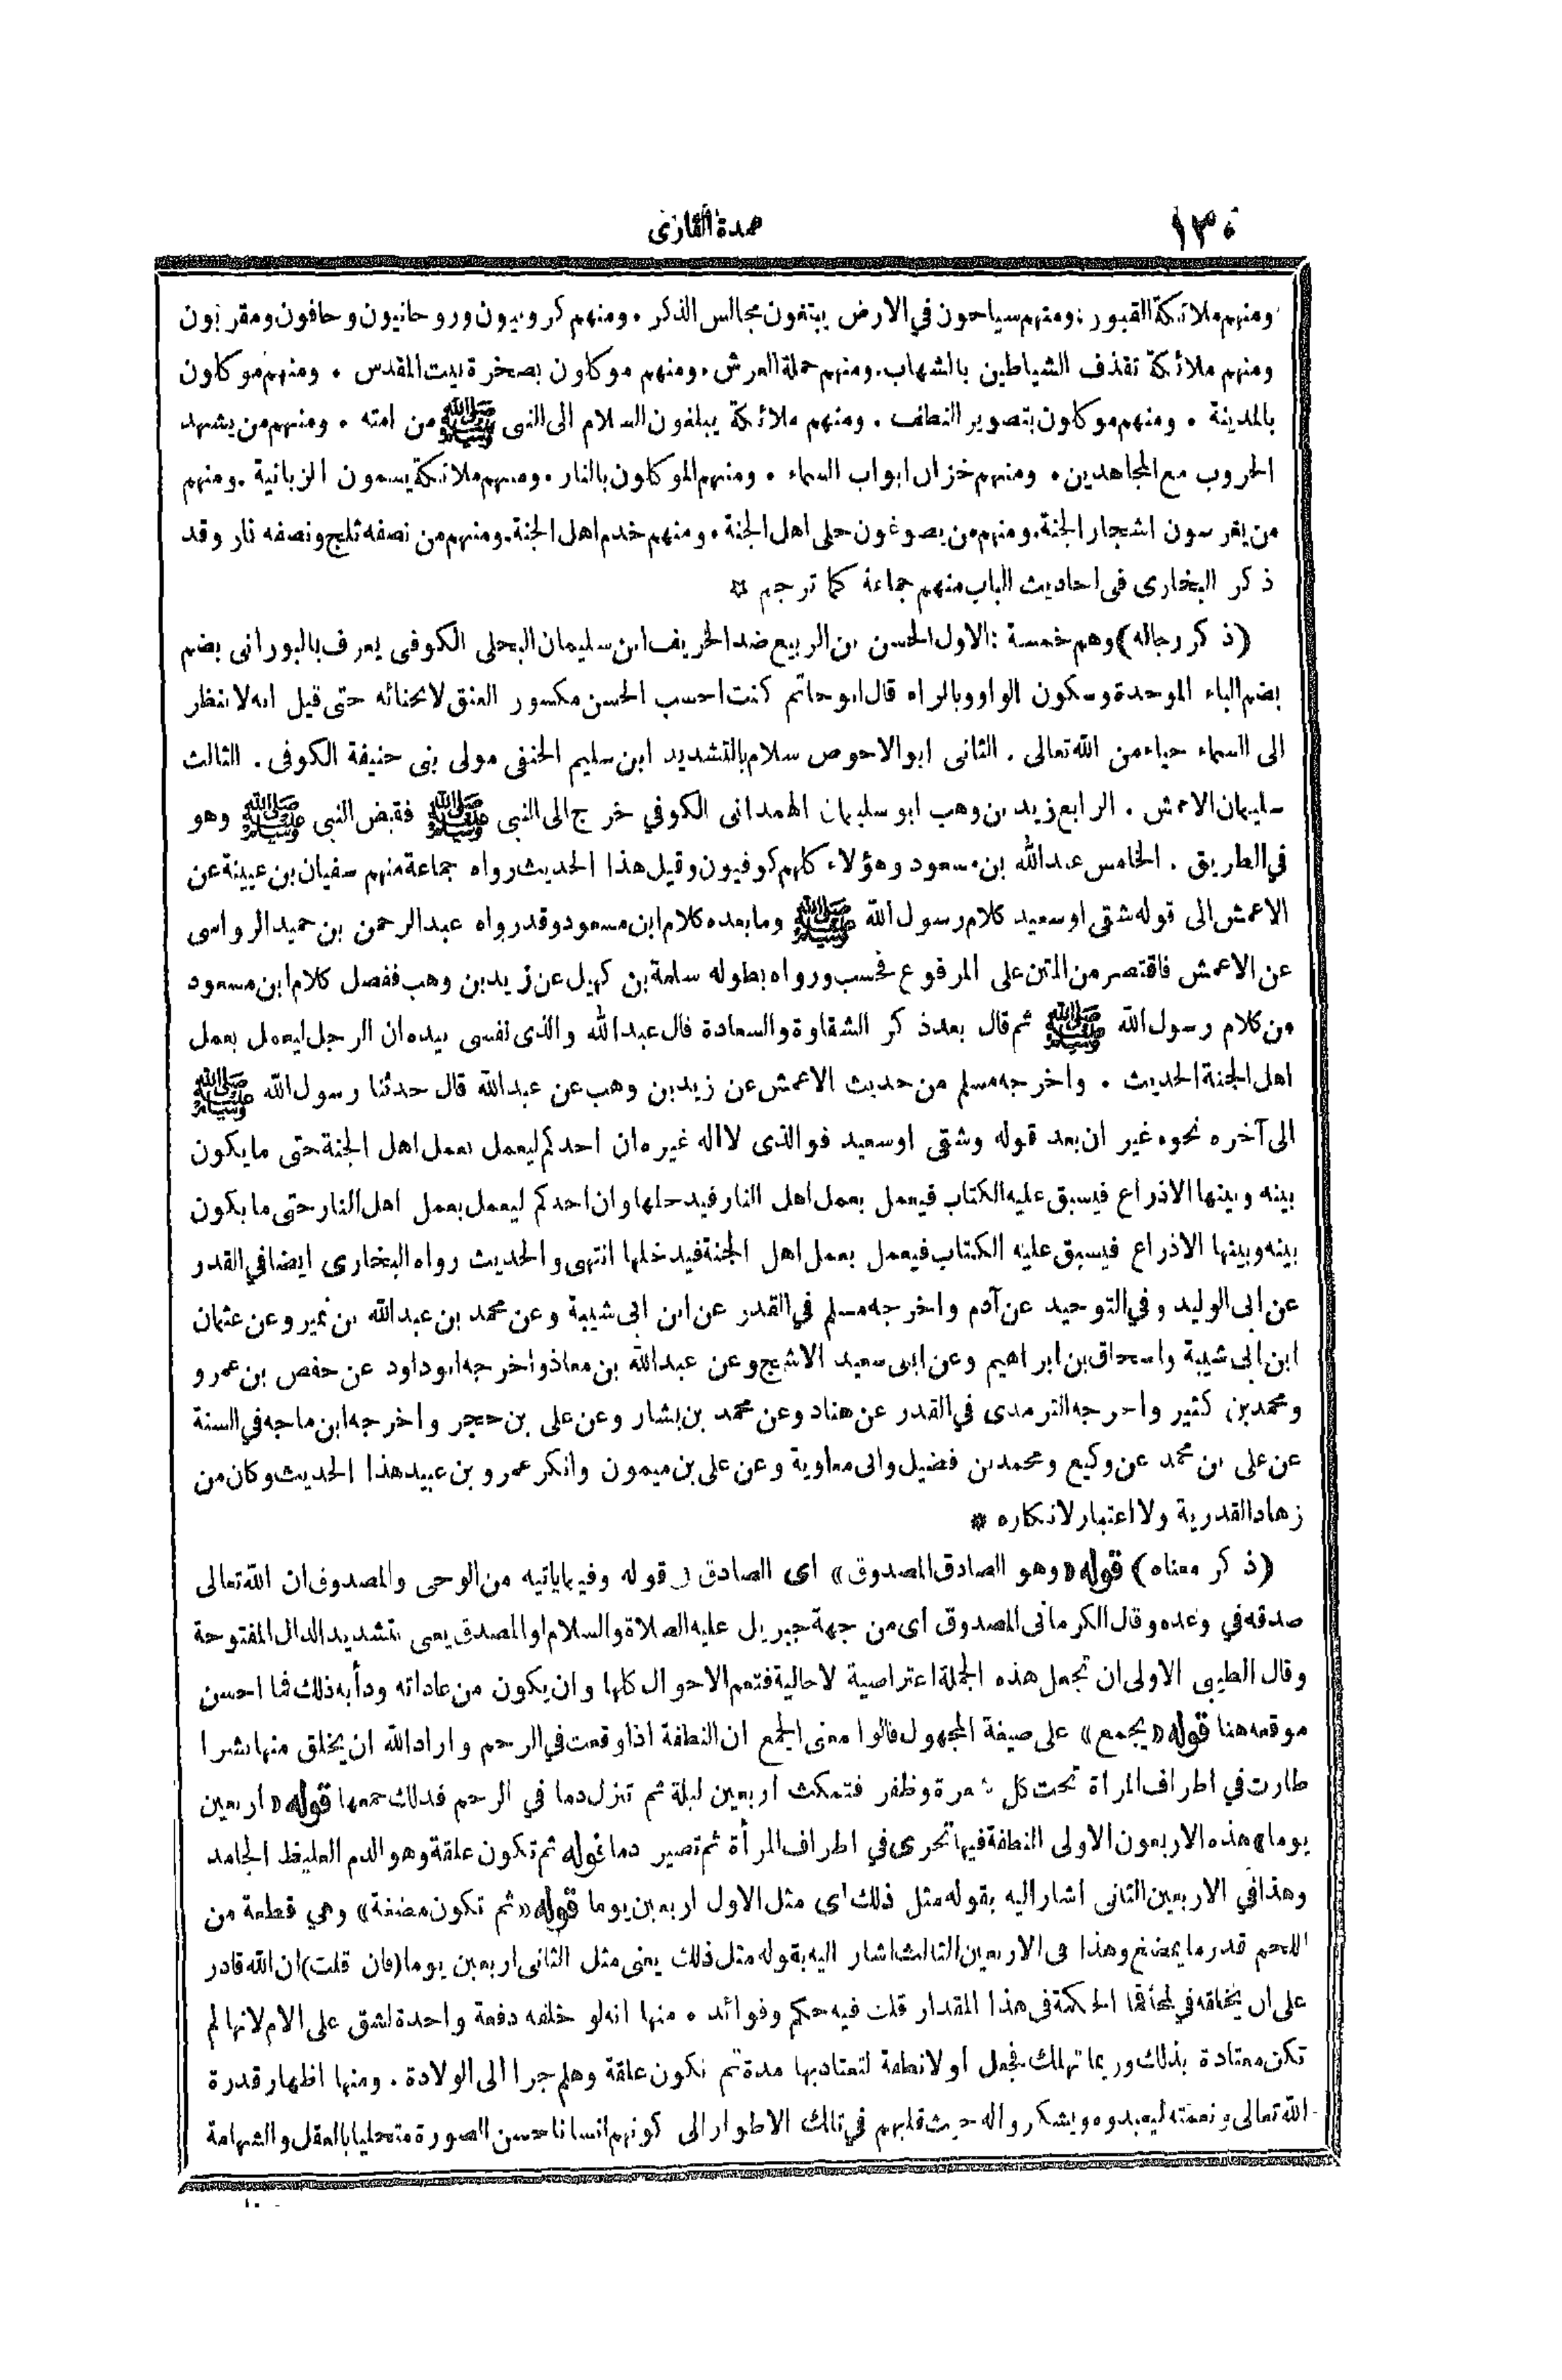 ١٣٠
عمدة القارى
ومنهم ملائكة القبور. ومنهم سياحون في الارض يبتغون مجالس الذكر. ومنهم كروبيون وروحانيون وحافون ومقربون
ومنهم ملائكة تقذف الشياطين بالشهاب. ومنهم حملة العرش. ومنهم موكلون بصخرة بيت المقدس. ومنهم موكلون
بالمدينة. ومنهم موكلون بتصوير النطف. ومنهم ملائكة يبلغون السلام الى النبى ﷺ من امته. ومنهم من يشهد
الحروب مع المجاهدين. ومنهم خزان ابواب السماء. ومنهم الموكلون بالنار. ومنهم ملائكة يسمون الزبانية. ومنهم
من يغرسون اشجار الجنة. ومنهم من يصوغون حلى اهل الجنة. ومنهم خدم اهل الجنة. ومنهم من نصفه ثلج ونصفه نار وقد
ذكر البخارى فى احاديث الباب منهم جماعة كما ترجم *
(ذكر رجاله) وهم خمسة: الاول الحسن بن الربيع ضد الخريف ابن سليمان البجلى الكوفى يعرف بالبورانى بضم
بضم الباء الموحدة وسكون الواو وبالراء قال ابو حاتم كنت احسب الحسن مكسور العنق لانحنائه حتى قيل انه لا ينظر
الى السماء حياء من الله تعالى. الثانى ابو الاحوص سلام بالتشديد ابن سليم الحنفى مولى بنى حنيفة الكوفى. الثالث
سليمان الاعمش. الرابع زيد بن وهب ابو سليمان الهمدانى الكوفي خرج الى النبى ﷺ فقبض النبى ﷺ وهو
في الطريق. الخامس عبدالله بن مسعود وهؤلاء كلهم كوفيون وقيل هذا الحديث رواه جماعة منهم سفيان بن عيينة عن
الاعمش الى قوله شقى او سعيد كلام رسول الله ﷺ وما بعده كلام ابن مسعود وقد رواه عبدالرحمن بن حميد الرواسى
عن الاعمش فاقتصر من المتن على المرفوع فحسب ورواه بطوله سلمة بن كهيل عن زيد بن وهب ففصل كلام ابن مسعود
من كلام رسول الله ﷺ ثم قال بعد ذكر الشقاوة والسعادة قال عبد الله والذى نفسى بيده ان الرجل ليعمل بعمل
اهل الجنة الحديث. واخرجه مسلم من حديث الاعمش عن زيد بن وهب عن عبدالله قال حدثنا رسول الله ﷺ
الى آخره نحوه غير ان بعد قوله وشقى او سعيد فوالذى لا اله غيره ان احدكم ليعمل بعمل اهل الجنة حتى ما يكون
بينه وبينها الا ذراع فيسبق عليه الكتاب فيعمل بعمل اهل النار فيدخلها وان احدكم ليعمل بعمل اهل النار حتى ما يكون
بينه وبينها الا ذراع فيسبق عليه الكتاب فيعمل بعمل اهل الجنة فيدخلها انتهى والحديث رواه البخارى ايضا في القدر
عن ابى الوليد وفي التوحيد عن آدم واخرجه مسلم في القدر عن ابن ابى شيبة وعن محمد بن عبدالله بن نمير وعن عثمان
ابن ابى شيبة واسحاق بن ابراهيم وعن ابى سعيد الاشج وعن عبدالله بن معاذ واخرجه ابوداود عن حفص بن عمرو
ومحمد بن كثير واخرجه الترمذى في القدر عن هناد وعن محمد بن بشار وعن على بن حجر واخرجه ابن ماجه في السنة
عن على بن محمد عن وكيع ومحمد بن فضيل وابى معاوية وعن على بن ميمون وانكر عمرو بن عبيد هذا الحديث وكان من
زهاد القدرية ولا اعتبار لانكاره *
(ذكر معناه) قوله «وهو الصادق المصدوق» اى الصادق فى قوله وفيما ياتيه من الوحى والمصدوق ان الله تعالى
صدقه في وعده وقال الكرمانى المصدوق اى من جهة جبريل عليه الصلاة والسلام او المصدق يعنى بتشديد الدال المفتوحة
وقال الطيبى الاولى ان تجعل هذه الجملة اعتراضية لا حالية فتعم الاحوال كلها وان يكون من عاداته ودأبه ذلك فما احسن
موقعه هنا قوله «يجمع» على صيغة المجهول قالوا معنى الجمع ان النطفة اذا وقعت في الرحم واراد الله ان يخلق منها بشرا
طارت في اطراف المراة تحت كل شعرة وظفر فتمكث اربعين ليلة ثم تنزل دما في الرحم فذلك جمعها قوله «اربعين
يوما» هذه الاربعون الاولى النطفة فيها تجرى في اطراف المرأة ثم تصير دما قوله ثم تكون علقة وهو الدم الغليظ الجامد
وهذا في الاربعين الثانى اشار اليه بقوله مثل ذلك اى مثل الاول اربعين يوما قوله «ثم تكون مضغة» وهي قطعة من
اللحم قدر ما يمضغ وهذا فى الاربعين الثالث اشار اليه بقوله مثل ذلك يعنى مثل الثانى اربعين يوما (فان قلت) ان الله قادر
على ان يخلقه في لمحة فما الحكمة فى هذا المقدار قلت فيه حكم وفوائد. منها انه لو خلقه دفعة واحدة لشق على الام لانها لم
تكن معتادة بذلك وربما تهلك فجعل اولا نطفة لتعتاد بها مدة ثم تكون علقة وهلم جرا الى الولادة. ومنها اظهار قدرة
الله تعالى ونعمته ليعبدوه ويشكروا له حيث قلبهم في تلك الاطوار الى كونهم انسانا حسن الصورة متحليا بالعقل والشهامة